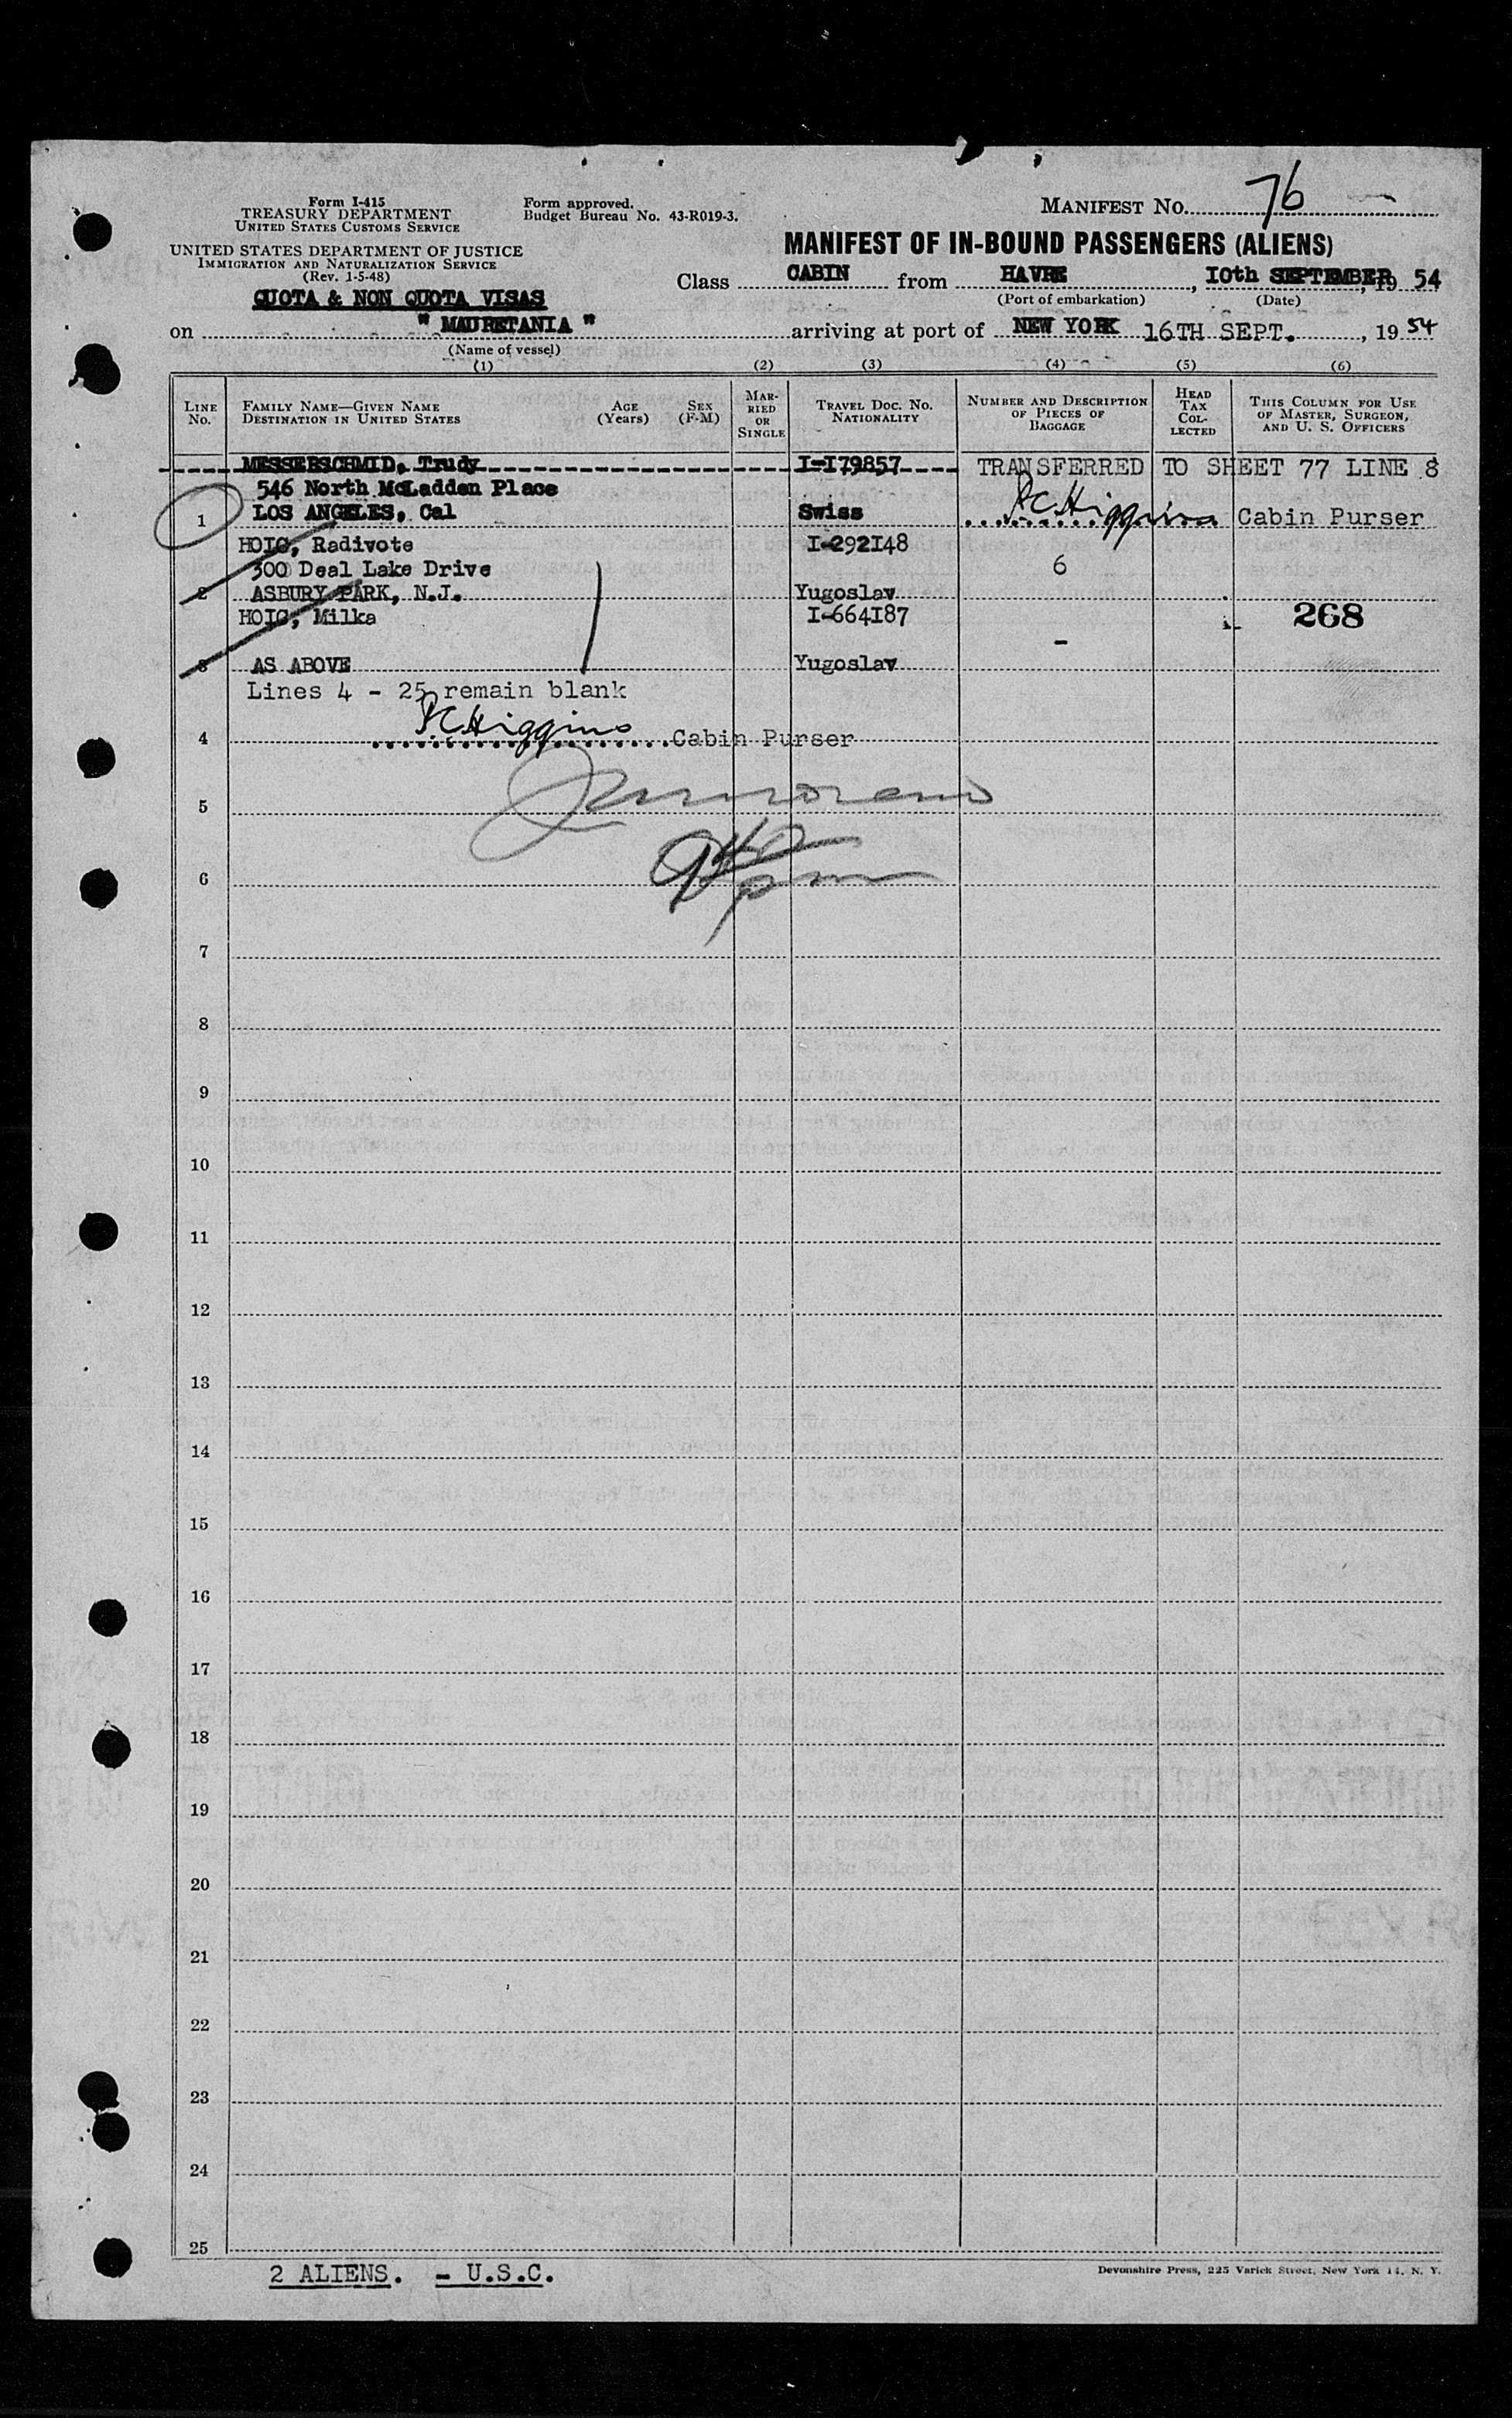 Form I-415
TREASURY DEPARTMENT
UNITED STATES CUSTOMS SERVICE
Form approved.
Budget Bureau No. 43-R019-3.
MANIFEST NO. 76
UNITED STATES DEPARTMENT OF JUSTICE
IMMIGRATION AND NATURALIZATION SERVICE
(Rev. 1-5-48)
MANIFEST OF IN-BOUND PASSENGERS (ALIENS)
QUOTA & NON QUOTA VISAS
Class CABIN from HAVRE, I0th SEPTEMBER, 19 54
(Port of embarkation) (Date)
on " MAURETANIA " arriving at port of NEW YORK 16TH SEPT., 19 54
(Name of vessel)
(1) (2) (3) (4) (5) (6)
LINE NO. FAMILY NAME—GIVEN NAME DESTINATION IN UNITED STATES AGE (Years) SEX (F-M) MARRIED OR SINGLE TRAVEL DOC. NO. NATIONALITY NUMBER AND DESCRIPTION OF PIECES OF BAGGAGE HEAD TAX COLLECTED THIS COLUMN FOR USE OF MASTER, SURGEON, AND U. S. OFFICERS
MESSERSCHMID, Trudy I-I79857 TRANSFERRED TO SHEET 77 LINE 8
546 North McLadden Place
1 LOS ANGELES, Cal Swiss Higgins Cabin Purser
HOIG, Radivote I-292I48
300 Deal Lake Drive 6
2 ASBURY PARK, N.J. Yugoslav
HOIG, Milka I-664I87 268
-
3 AS ABOVE Yugoslav
Lines 4 - 25 remain blank
4 Higgins Cabin Purser
5
6
7
8
9
10
11
12
13
14
15
16
17
18
19
20
21
22
23
24
25
2 ALIENS. - U.S.C.
Devonshire Press, 225 Varick Street, New York 14, N. Y.